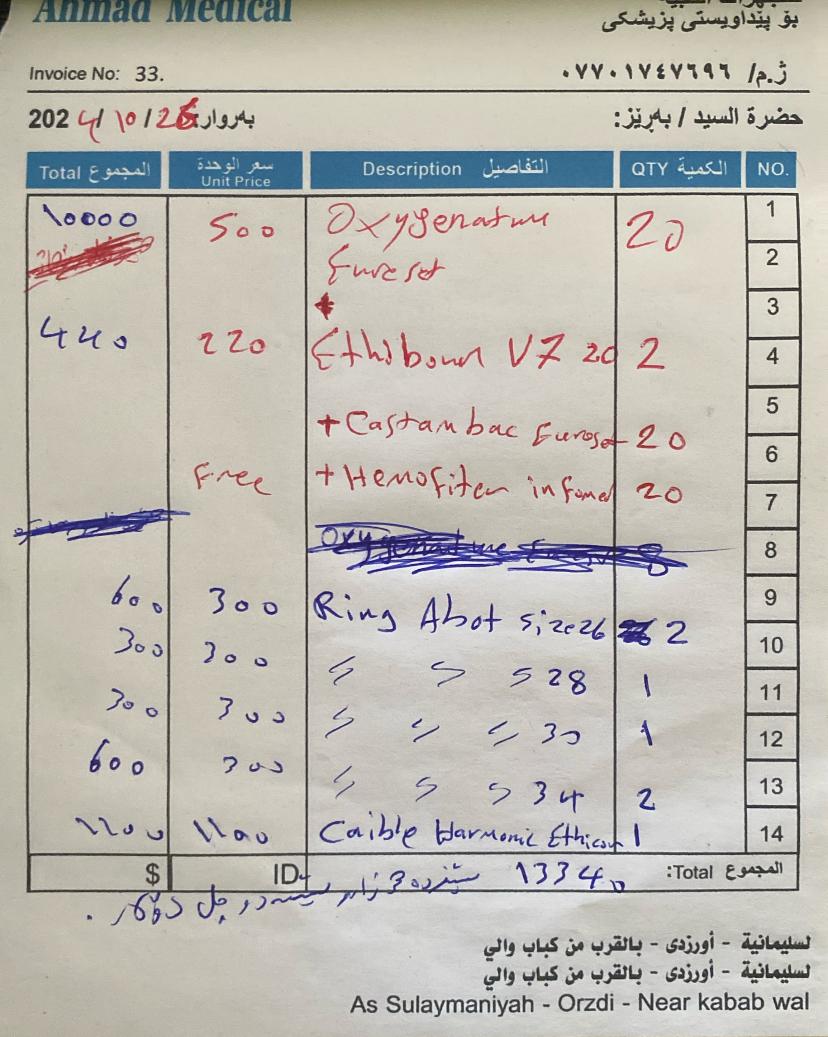 Ahmad Medical
بۆ پێداویستی پزیشکی
Invoice No: 33.
ژ.م/ ٠٧٧٠١٧٤٧٦٩٦
2024/10/26 بەروار:
حضرة السيد / بەڕێز:
المجموع Total سعر الوحدة Unit Price Description التفاصيل QTY الكمية NO.
10000 500 Oxygenature 20 1
Euroset 2
3
440 220 Ethiboun V7 20 2 4
5
+ Castambac Euroset 20 6
Free + Hemofiter infomed 20 7
8
600 300 Ring Abot size 26 2 9
300 300 〃 〃 〃 28 1 10
11
300 300 〃 〃 〃 30 1 12
600 300 〃 〃 〃 34 2 13
1100 1100 Caible Harmonic Ethicon 1 14
$ ID 13340 المجموع Total:
لسليمانية - أورزدى - بالقرب من كباب والي
لسليمانية - أورزدى - بالقرب من كباب والي
As Sulaymaniyah - Orzdi - Near kabab wal